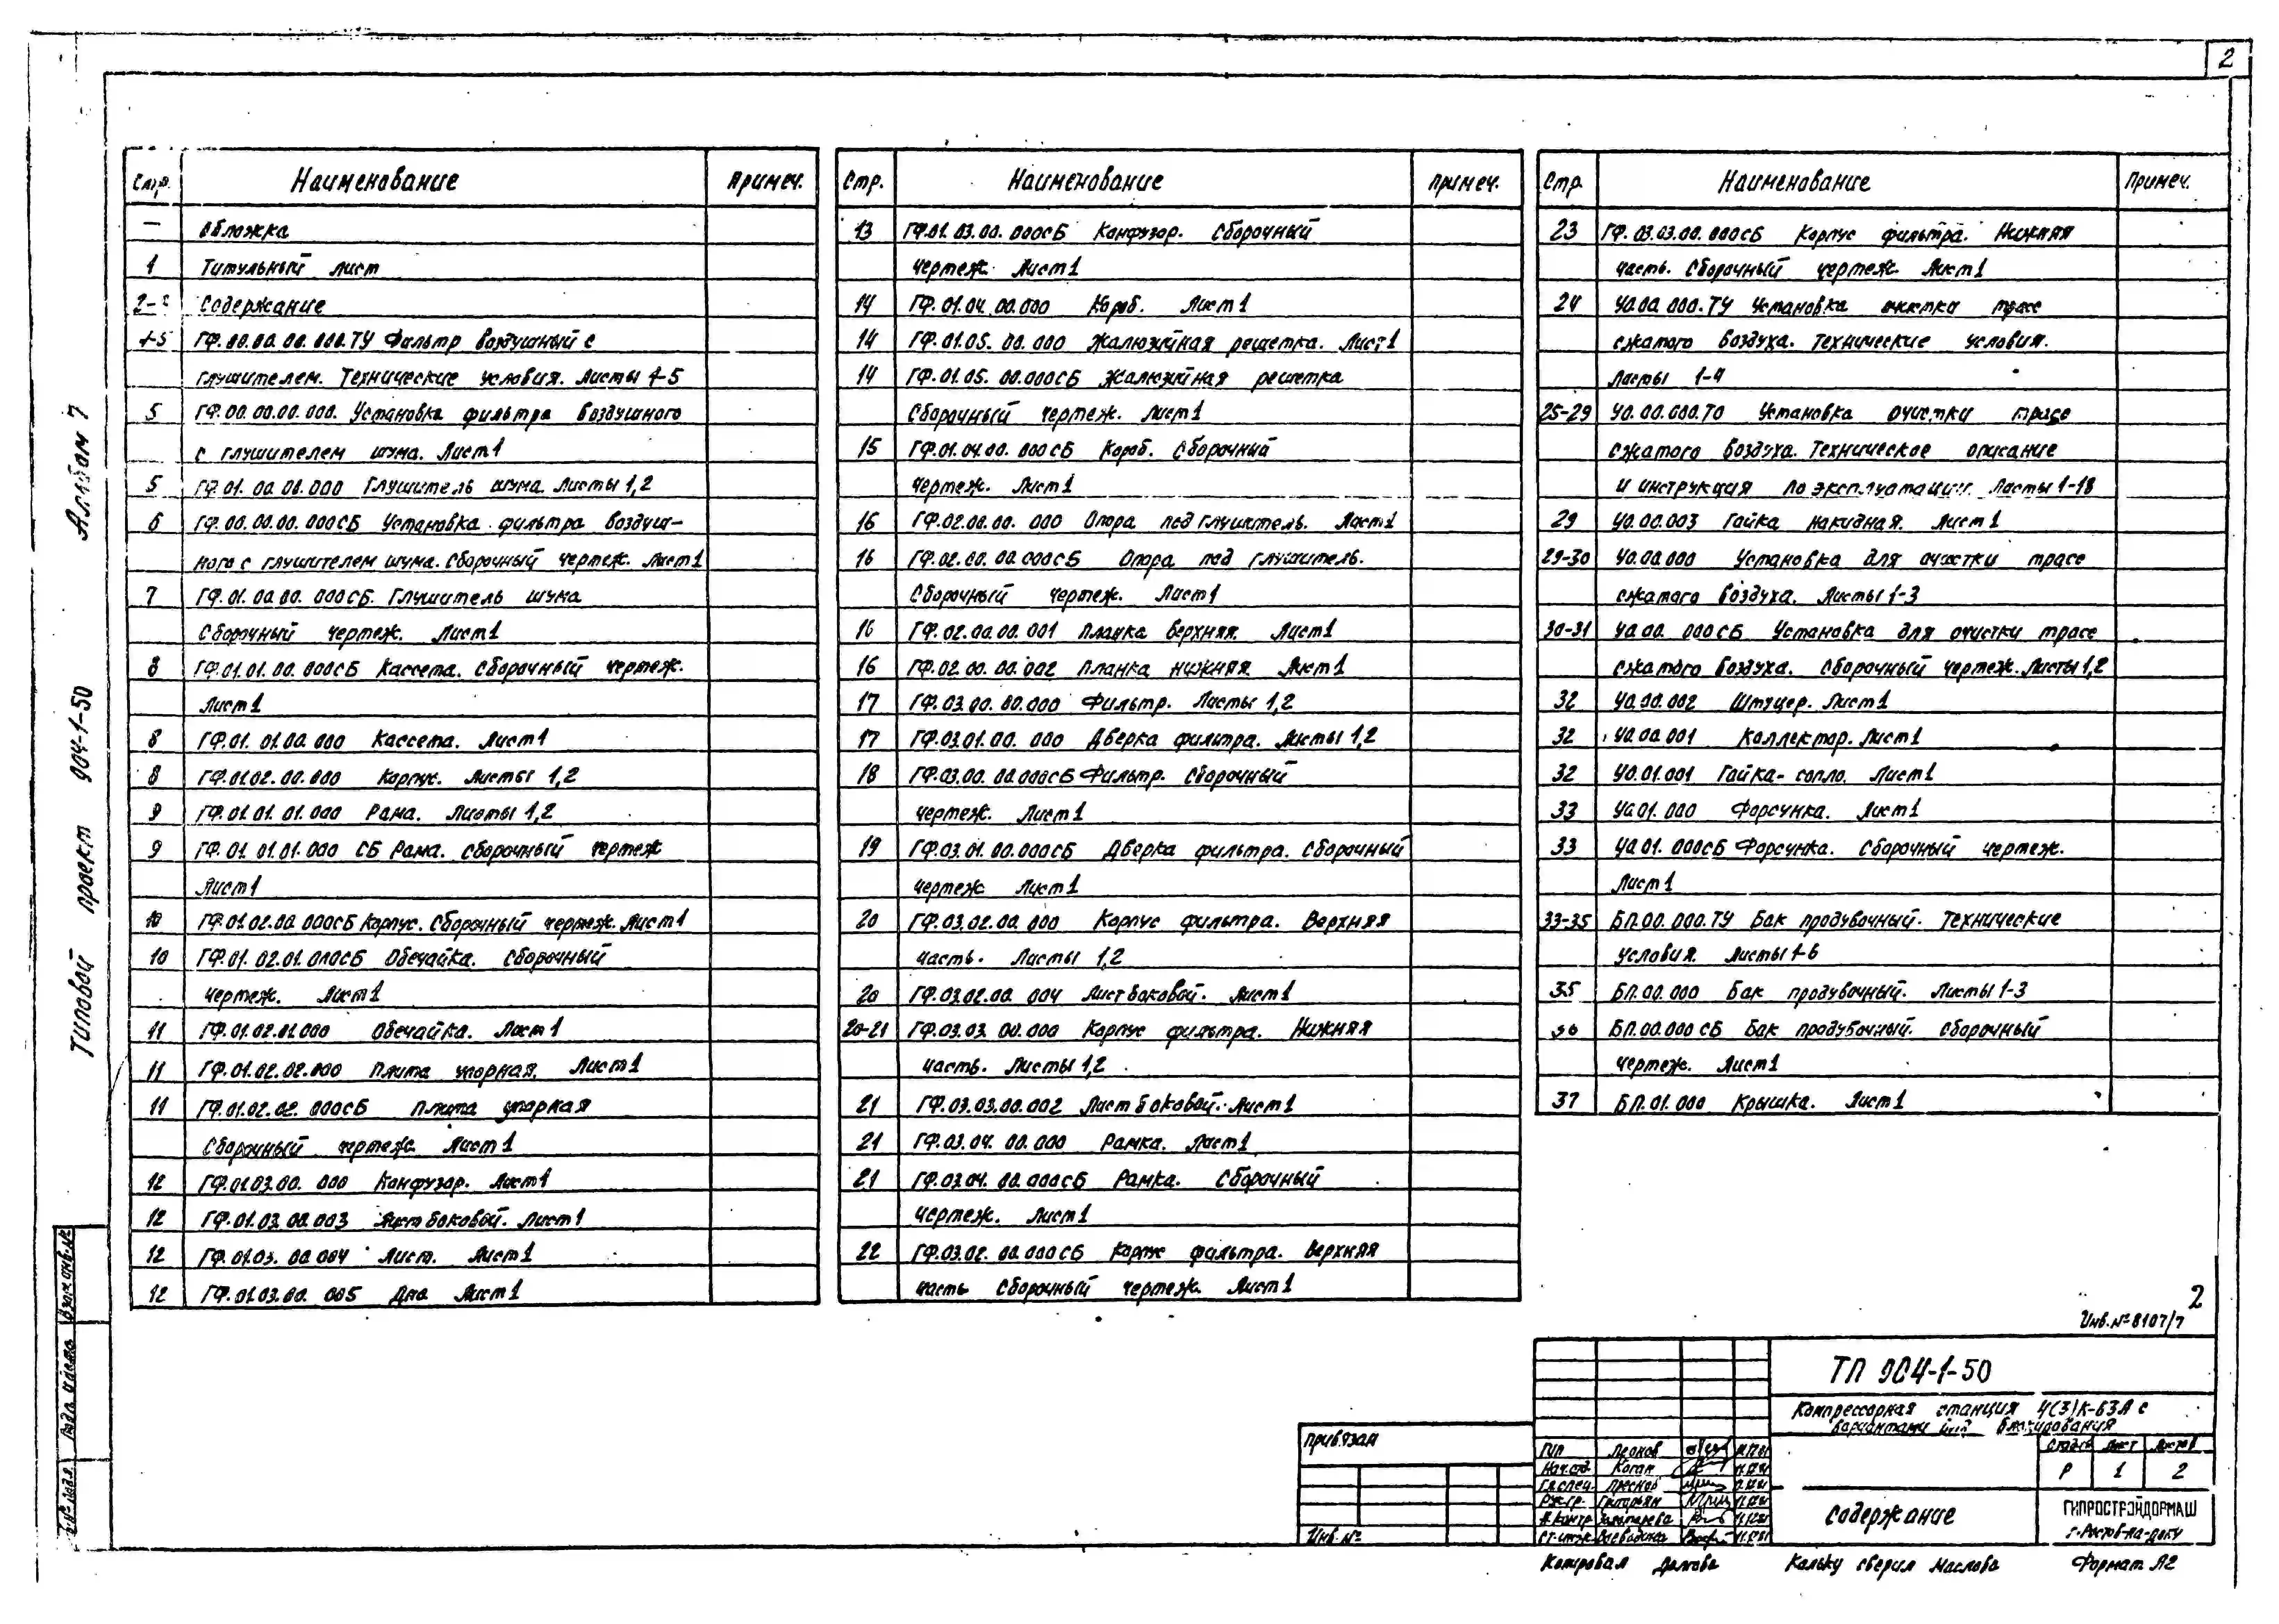 2
Альбом 7
Типовой проект 904-1-50
Стр. Наименование Примеч.
— Обложка
1 Титульный лист
Содержание
4-5 ГФ.00.00.00.000.ТУ Фильтр воздушный с
глушителем. Технические условия. Листы 4-5
5 ГФ.00.00.00.000. Установка фильтра воздушного
с глушителем шума. Лист1
5 ГФ.01.00.00.000 Глушитель шума. Листы 1,2
6 ГФ.00.00.00.000СБ Установка фильтра воздуш-
ного с глушителем шума. Сборочный чертеж. Лист1
7 ГФ.01.00.00.000СБ. Глушитель шума
Сборочный чертеж. Лист1
8 ГФ.01.01.00.000СБ Кассета. Сборочный чертеж.
Лист1
8 ГФ.01.01.00.000 Кассета. Лист1
8 ГФ.01.02.00.000 Корпус. Листы 1,2
9 ГФ.01.01.01.000 Рама. Листы 1,2
9 ГФ.01.01.01.000 СБ Рама. Сборочный чертеж
Лист1
10 ГФ.01.02.00.000СБ Корпус. Сборочный чертеж. Лист1
10 ГФ.01.02.01.000СБ Обечайка. Сборочный
чертеж. Лист1
11 ГФ.01.02.01.000 Обечайка. Лист1
11 ГФ.01.02.02.000 Плита упорная. Лист1
11 ГФ.01.02.02.000СБ Плита упорная
Сборочный чертеж. Лист1
12 ГФ.01.03.00.000 Конфузор. Лист1
12 ГФ.01.03.00.003 Лист боковой. Лист1
12 ГФ.01.03.00.004 Лист. Лист1
12 ГФ.01.03.00.005 Дно Лист1
Стр. Наименование Примеч.
13 ГФ.01.03.00.000СБ Конфузор. Сборочный
чертеж. Лист1
14 ГФ.01.04.00.000 Короб. Лист1
14 ГФ.01.05.00.000 Жалюзийная решетка. Лист1
14 ГФ.01.05.00.000СБ Жалюзийная решетка
Сборочный чертеж. Лист1
15 ГФ.01.04.00.000СБ Короб. Сборочный
чертеж. Лист1
16 ГФ.02.00.00.000 Опора под глушитель. Лист1
16 ГФ.02.00.00.000СБ Опора под глушитель.
Сборочный чертеж. Лист1
16 ГФ.02.00.00.001 Планка верхняя. Лист1
16 ГФ.02.00.00.002 Планка нижняя. Лист1
17 ГФ.03.00.00.000 Фильтр. Листы 1,2
17 ГФ.03.01.00.000 Дверка фильтра. Листы 1,2
18 ГФ.03.00.00.000СБ Фильтр. Сборочный
чертеж. Лист1
19 ГФ.03.01.00.000СБ Дверка фильтра. Сборочный
чертеж Лист1
20 ГФ.03.02.00.000 Корпус фильтра. Верхняя
часть. Листы 1,2
20 ГФ.03.02.00.004 Лист боковой. Лист1
20-21 ГФ.03.03.00.000 Корпус фильтра. Нижняя
часть. Листы 1,2
21 ГФ.03.03.00.002 Лист боковой. Лист1
21 ГФ.03.04.00.000 Рамка. Лист1
21 ГФ.03.04.00.000СБ Рамка. Сборочный
чертеж. Лист1
22 ГФ.03.02.00.000СБ Корпус фильтра. Верхняя
часть Сборочный чертеж. Лист1
Стр. Наименование Примеч.
23 ГФ.03.03.00.000СБ Корпус фильтра. Нижняя
часть. Сборочный чертеж. Лист1
24 УО.00.000.ТУ Установка очистки трасс
сжатого воздуха. Технические условия.
Листы 1-4
25-29 УО.00.000.ТО Установка очистки трасс
сжатого воздуха. Техническое описание
и инструкция по эксплуатации. Листы 1-18
29 УО.00.003 Гайка накидная. Лист1
29-30 УО.00.000 Установка для очистки трасс
сжатого воздуха. Листы 1-3
30-31 УО.00.000СБ Установка для очистки трасс
сжатого воздуха. Сборочный чертеж. Листы 1,2
32 УО.00.002 Штуцер. Лист1
32 УО.00.001 Коллектор. Лист1
32 УО.01.001 Гайка-сопло. Лист1
33 УО.01.000 Форсунка. Лист1
33 УО.01.000СБ Форсунка. Сборочный чертеж.
Лист1
33-35 БП.00.000.ТУ Бак продувочный. Технические
условия. Листы 1-6
35 БП.00.000 Бак продувочный. Листы 1-3
36 БП.00.000 СБ Бак продувочный. Сборочный
чертеж. Лист1
37 БП.01.000 Крышка. Лист1
2
Инв.№8107/7
ТП 904-1-50
Компрессорная станция 4(3)К-63А с
вариантами блокирования
Привязан
Инв.№
ГИП Леонов
Нач.отд. Коган
Гл.спец.
Рук.гр.
Н.контр
Ст.инж.
Стадия Лист Листов
Р 1 2
Содержание
ГИПРОСТРОЙДОРМАШ
г.Ростов-на-Дону
Копировал Кальку сверил Маслова Формат А2